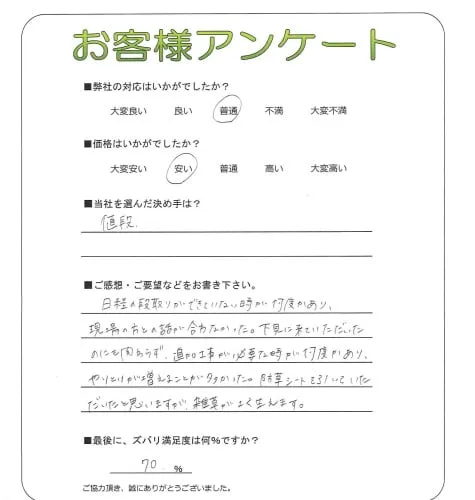 お客様アンケート
■弊社の対応はいかがでしたか？
大変良い 良い 普通 不満 大変不満
■価格はいかがでしたか？
大変安い 安い 普通 高い 大変高い
■当社を選んだ決め手は？
値段.
■ご感想・ご要望などをお書き下さい。
日程の段取りができていない時が何度かあり、
現場の方との話が合わなかった。下見に来ていただいた
のにも関わらず、追加工事が必要な時が何度かあり、
やりとりが増えることが多かった。防草シートを引いていた
だいたと思いますが、雑草がよく生えます。
■最後に、ズバリ満足度は何％ですか？
70 %
ご協力頂き、誠にありがとうございました。